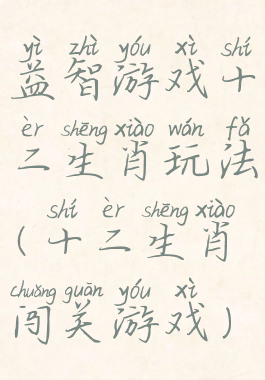 yì zhì yóu xì shí
益智游戏十
èr shēng xiào wán fǎ
二生肖玩法
shí èr shēng xiào
(十二生肖
chuǎng guān yóu xì
闯关游戏)